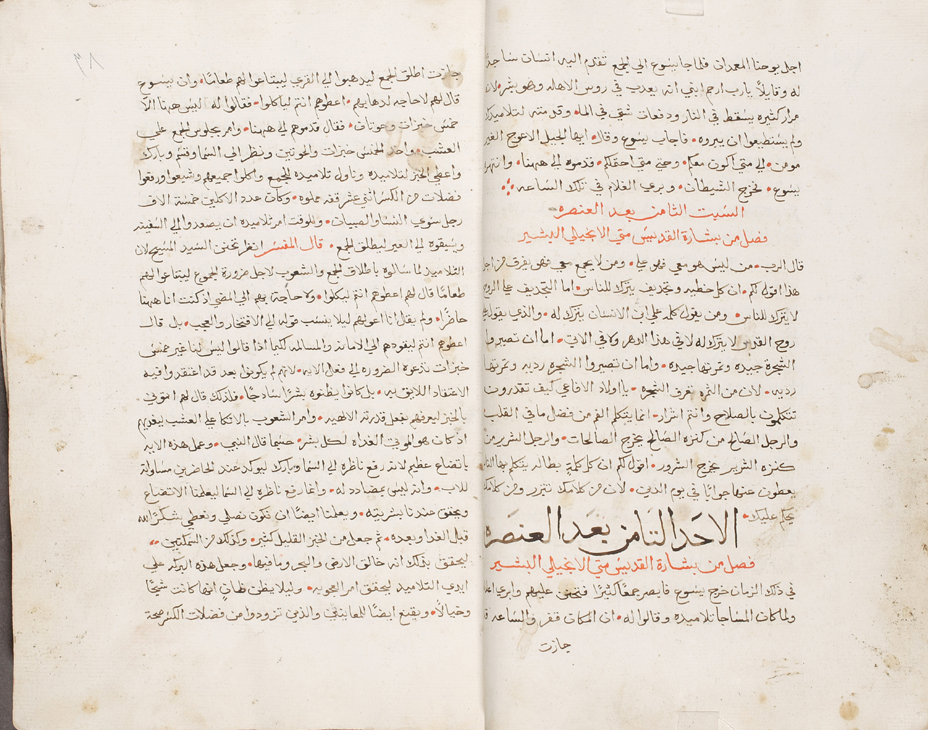 اجل يوحنا المعمدان فلما جا يسوع الي الجمع تقدم اليه انسان ساجدا
له وقايلاً يارب ارحم ابني انه يعدب في روس الاهله وهو بشر لان
مرار كثيره يسقط في النار ودفعات شتي في الما وقدمته لتلاميدك
ولم يستطيعوا ان يبروه فاجاب يسوع وقال ايها الجيل الاعوج الغير
مومن الي متي اكون معكم وحتي متي احتملكم قدموه الي ههنا وانتهره
يسوع فخرج الشيطان وبري الغلام في تلك الساعه
السبت الثامن بعد العنصره
فصل من بشارة القديس متي الانجيلي البشير
قال الرب من ليس هو معي فهو علي ومن لا يجمع معي فهو يفرق من اجل
هذا اقول لكم ان كل خطيه وتجديف يترك للناس اما التجديف علي الروح
لا يترك للناس ومن يقول كلمه علي ابن الانسان يترك له والذي يقول علي
روح القدس لا يترك له لا في هذا الدهر ولا في الاتي اما ان تصيروا
الشجرة جيده وثمرتها جيده واما ان تصيروا الشجره رديه وثمرتها
رديه لان من الثمره تعرف الشجره يا اولاد الافاعي كيف تقدرون
تتكلمون بالصلاح وانتم اشرار انما يتكلم الفم من فضل ما في القلب
والرجل الصالح من كنزه الصالح يخرج الصالحات والرجل الشرير من
كنزه الشرير يخرج الشرور اقول لكم ان كل كلمة بطاله يتكلم بها الناس
يعطون عنها جوابًا في يوم الدين لان من كلامك تتبرر ومن كلامك
يحكم عليك
الاحد الثامن بعد العنصره
فصل من بشارة القديس متي الانجيلي البشير
في ذلك الزمان خرج يسوع فابصر جمعًا كثيرًا فتحنن عليهم وابري اعلاهم
ولما كان المسا جا تلاميده وقالوا له ان المكان قفر والساعه قد
جازت
٣٨
جازت اطلق الجمع ليدهبوا الي القري ليبتاعوا لهم طعامًا وان يسوع
قال لهم لا حاجه لدهابهم اعطوهم انتم لياكلوا فقالوا له ليس ههنا الا
خمس خبزات وحوتان فقال قدموهم الي ههنا وامر بجلوس الجمع علي
العشب واخد الخمس خبزات والحوتين ونظر الي السما وقسم وبارك
واعطي الخبز لتلاميده وناول تلاميده للجميع واكلوا جميعهم وشبعوا ورفعوا
فضلات من الكسر اثني عشر قفه مملوه وكان عدد الاكلين خمسة الاف
رجل سوي النسا والصبيان وللوقت امر تلاميده ان يصعدوا الي السفينه
ويسبقوه الي العبر ليطلق الجمع قال المفسر انظر تحنن السيد المسيح لان
التلاميد لما سالوه باطلاق الجمع والشعوب لاجل ضرورة الجوع ليبتاعوا لهم
طعامًا قال لهم اعطوهم انتم لياكلوا ولا حاجة بهم الي المضي اذ كنت انا ههنا
حاضرًا ولم يقل انا اعولهم ليلا ينسب قوله الي الافتخار والعجب بل قال
اعطوهم انتم ليقودهم الي الامانه والمساله لكيما اذا قالوا ليس لنا غير خمس
خبزات تدعوه الضروره الي فعل الايه لانهم لم يكونوا بعد قد اعتقدوا فيه
الاعتقاد اللايق به بل كانوا يظنوه بشرًا سادجًا فلذلك قال لهم اتوني
بالخبز ليعرفهم بفعل قدرته الالهيه وامر الشعوب بالاتكا علي العشب ليغديهم
اذ كان هو الموتي الغداء لكل بشر حسبما قال النبي وعمل هذه الايه
باتضاع عظيم لانه رفع ناظره الي السما وبارك ليوكد عند الحاضرين مساواته
للاب وانه ليس بمضادد له وانما رفع ناظره الي السما ليعلمنا الاتضاع
ويحقق عندنا بشريته ويعلمنا ايضًا ان نكون نصلي ونعطي شكرًا لله
قبل الغدا وبعده ثم جعل من الخبز القليل كثير وكذلك من السمكتين
ليحقق بذلك انه خالق الارض والبحر وما فيها وجعل هذه البركه علي
ايدي التلاميد ليحقق امر العجوبه وليلا يظن ظان انها كانت شبحًا
وخيالاً ويقنع ايضًا للمعاينين والذين تزودوا من فضلات الكسر صحة